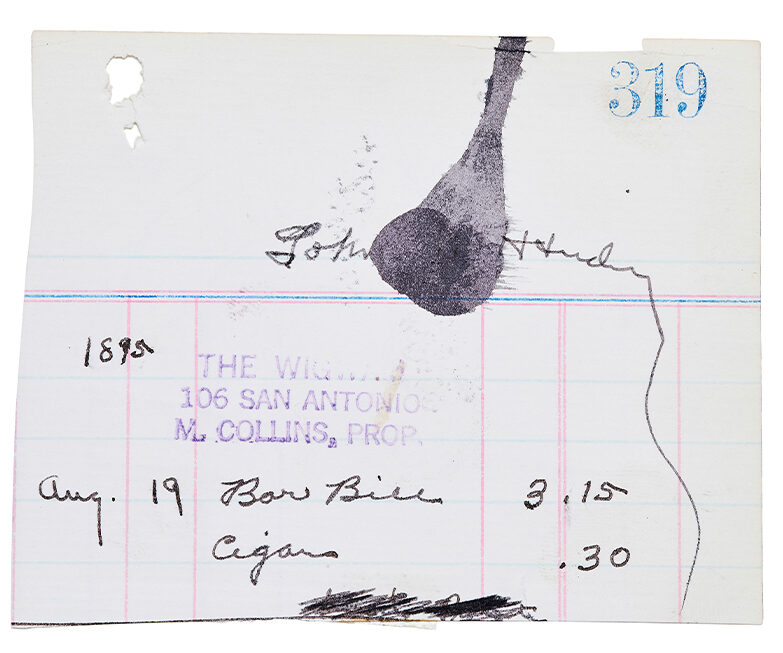 319
John Hardin
1895
THE
106 SAN ANTONIO
M. COLLINS, PROP.
Aug. 19 Bar Bill 3.15
Cigars .30